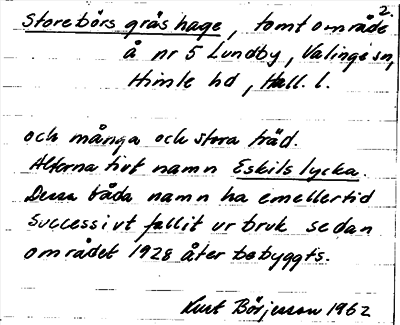 2.
Storebörs gräshage, tomtområde
å nr 5 Lundby, Valinge sn,
Himle hd, Hall. l.
och många och stora träd.
Alternativt namn Eskilslycka.
Dessa båda namn ha emellertid
successivt fallit ur bruk sedan
området 1928 åter bebyggts.
Kurt Börjesson 1962